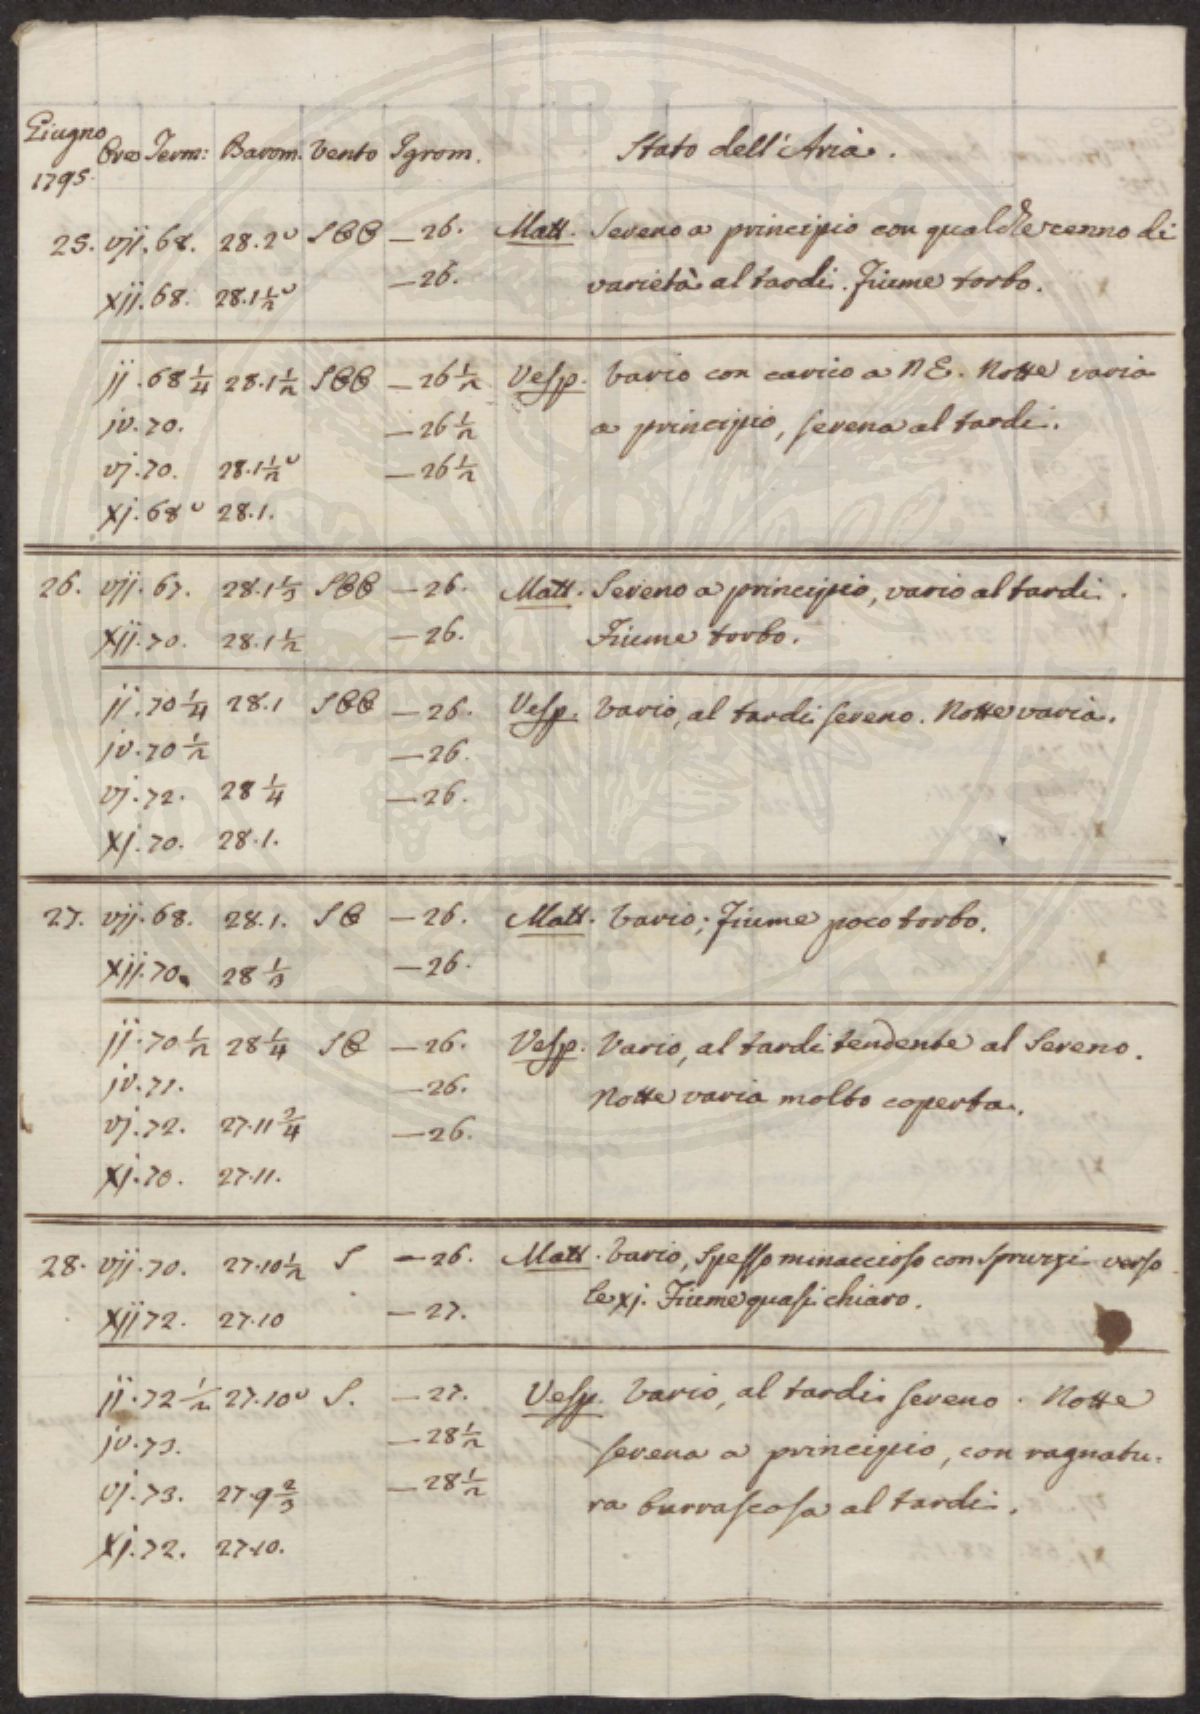 Giugno 1795. Ore Term: Barom. Vento Igrom. Stato dell'Aria.
25. vij. 68. 28.2 S E E — 26. Matt. Sereno a principio con qualche cenno di
xij. 68. 28.1½ — 26. varietà al tardi. Fiume torbo.
ij. 68 ¼ 28.1½ S E E — 26 ½ Vesp. Vario con carico a N E. Notte varia
iv. 70. — 26 ½ a principio, serena al tardi.
vj. 70. 28.1½ — 26 ½
xj. 68 28.1.
26. vij. 67. 28.1⅓ S E E — 26. Matt. Sereno a principio, vario al tardi.
xij. 70. 28.1½ — 26. Fiume torbo.
ij. 70 ¼ 28.1 S E E — 26. Vesp. Vario, al tardi sereno. Notte varia.
iv. 70 ½ — 26.
vj. 72. 28 ¼ — 26.
xj. 70. 28.1.
27. vij. 68. 28.1. S E — 26. Matt. Vario; Fiume poco torbo.
xij. 70. 28 ⅓ — 26.
ij. 70 ½ 28 ¼ S E — 26. Vesp. Vario, al tardi tendente al Sereno.
iv. 71. — 26. Notte varia molto coperta.
vj. 72. 27.11 2/4 — 26.
xj. 70. 27.11.
28. vij. 70. 27.10½ S — 26. Matt. Vario, spesso minaccioso con spruzzi verso
xij 72. 27.10 — 27. le xj. Fiume quasi chiaro.
ij. 72 ½ 27.10 S. — 27. Vesp. Vario, al tardi sereno. Notte
iv. 73. — 28 ½ serena a principio, con ragnatu-
vj. 73. 27.9 ⅔ — 28 ½ ra burrascosa al tardi.
xj. 72. 27.10.